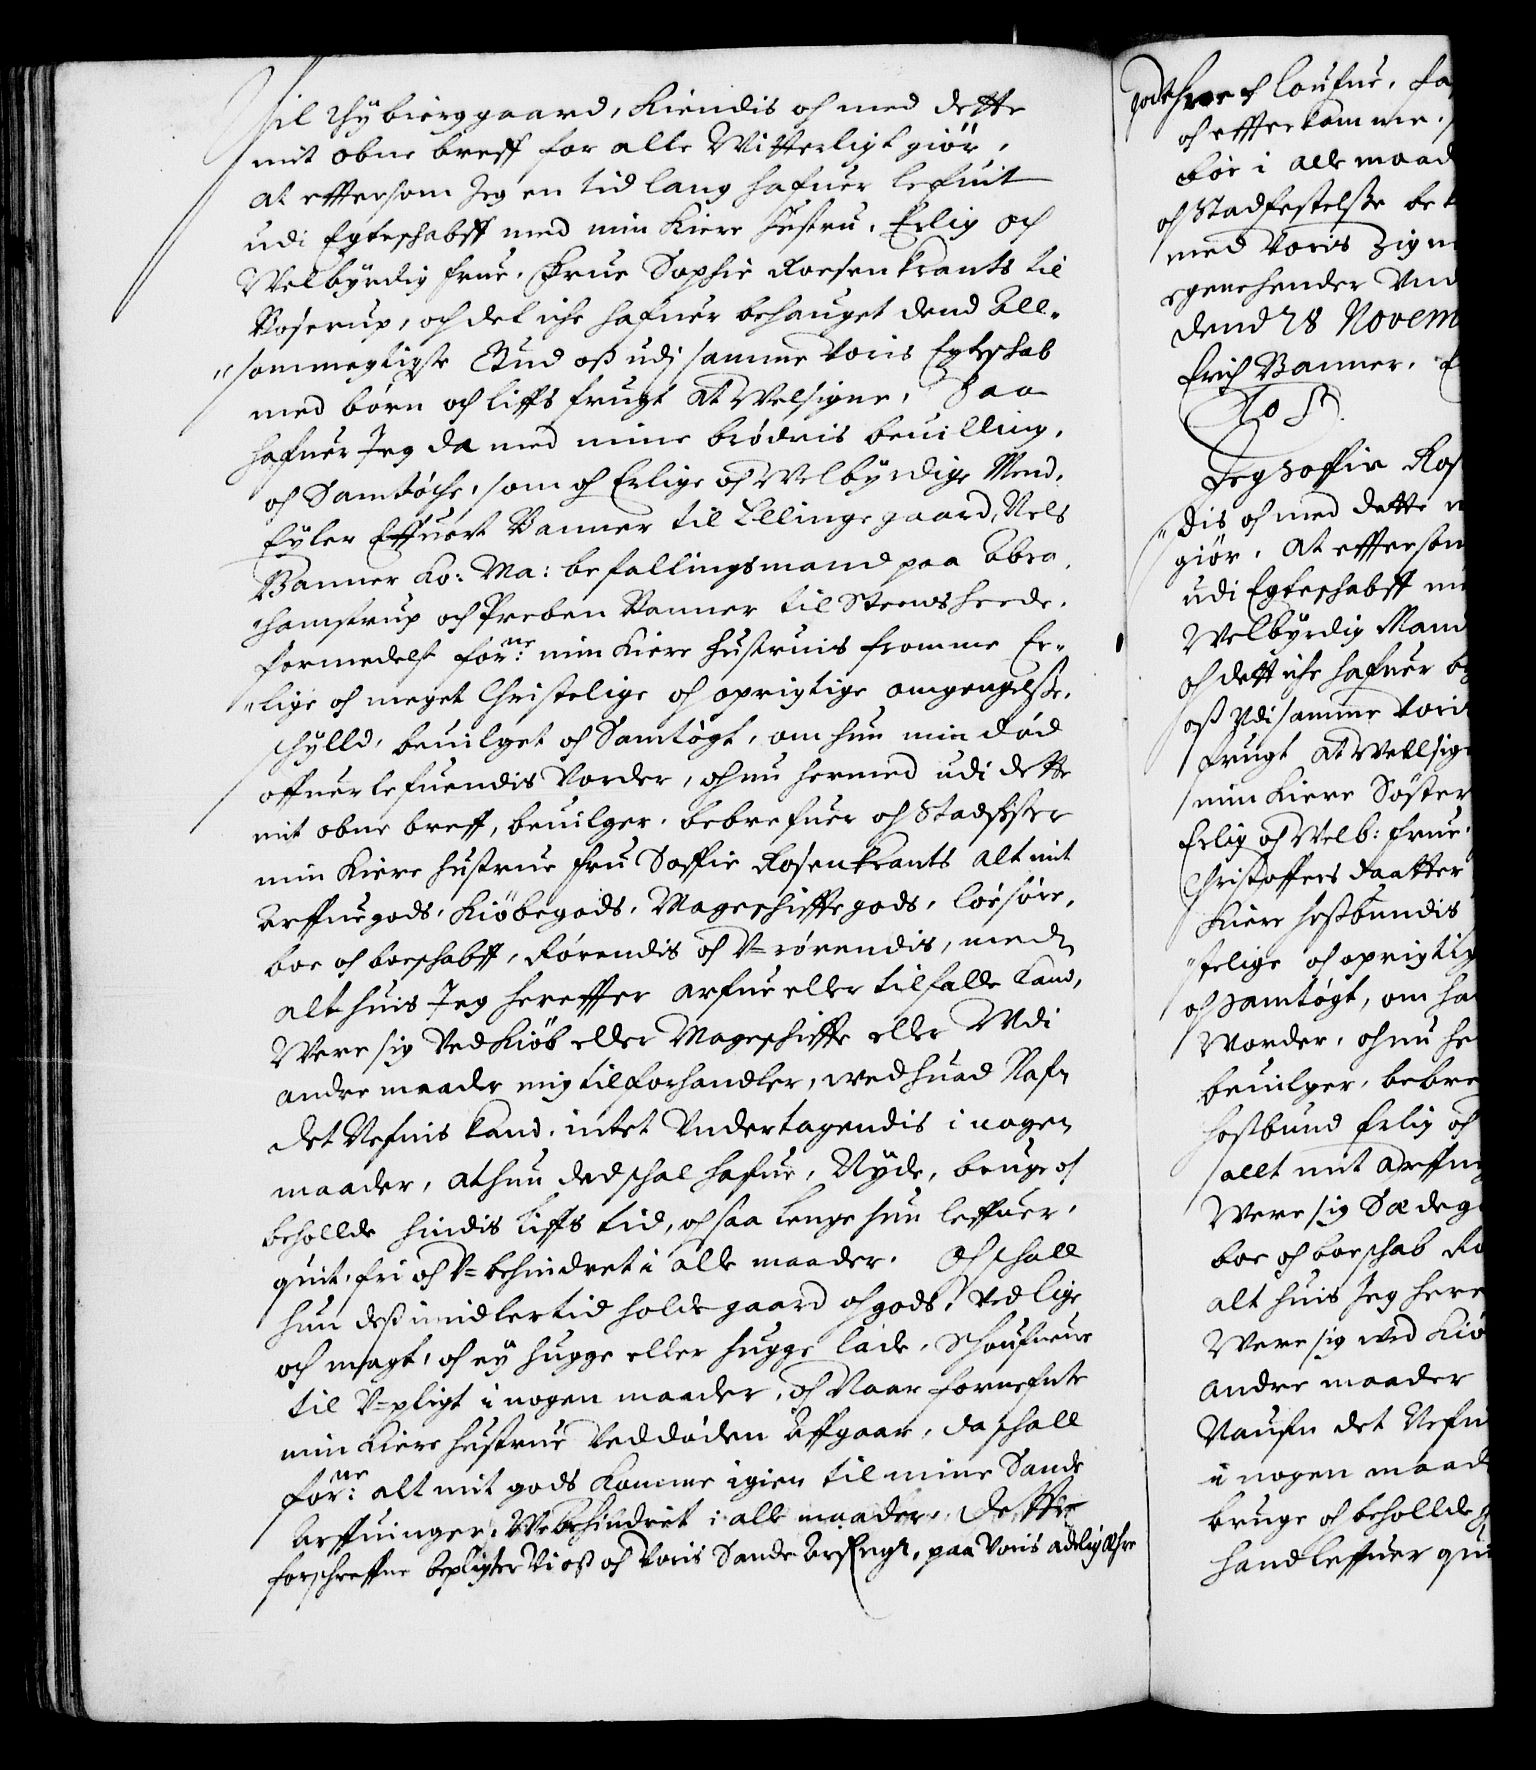 til Rybierggaard, Kiendis och med dette
mit obne breff for alle Witterligt giör,
at effterson Jeg en tid lang hafuer lefuit
udi Egteschabff med min Kiere hustru, Erlig och
Welbyrdig frue, Frue Sophie Roesenkrants til
Boserup, och det iche hafuer behauget dend All-
sommegtigste Gud oß udj samme voris Egteschab
med börn och liffs frugt at Welsigne, Saa
hafuer Jeg da med mine brödris beuilling,
och Samtöche, som er Erlige og Welbyrdige Mend,
Eyler Effuert Banner til Ellinge gaard, Nels
Banner Ko: Ma: befallingsmand paa Abra-
hamstrup och Preben Banner til Steensheede.
formedelst forne: min Kiere hustruis fromme Er-
lige och meget Christelige och oprigtige omgengelsße,
schylld, beuilget och Samtögt, om hun min död
offuerlefuendis vorder, och nu hermed udi dette
mit obne breff, beuilger, bebrefuer och Stadfester
min Kiere hustrue fru Soffie Rosenkrants alt mit
Arffuegods, Kiöbegods, Mageschiffte gods, löesöre,
boe och boeschabff, Rörendis och V-rörendis, med
alt huis Jeg hereffter arfue eller tilfalle kand,
Were sig Ved Kiöb eller Mageschiffte eller Udi
andre maader mig tilforhandler, wed huad Nafn
det Nefnis kand, intet Undertagendis i nogen
maader, at hun ded schal hafue, Nyde, bruge och
behollde hindis Liffs tid, och saa lenge hun leffuer,
quit, fri och V-behindret i alle maader. Och schall
hun deß imidlertid holde gaard och gods, Ved lige
och magt, och ey hugge eller hugge lade, Schoufuene
til V-pligt i nogen maader, och Naar fornefnte
min Kiere hustrue Ved döden Affgaar, da schall
forne: alt mit gods Komme igien til mine Sande
Arffuinger, V-behindret i alle maader. Dette
forschreffne bepligter Vi oß och Voris Sande Arfuing, paa Voris adelig Ære
gode troe och loufue, fa
och effterkomme
bör i alle maad
och Stadfestelsße be
med Voris Zign
egene hender Und
dend 28 Novem
Erich Banner. E
Jeg Soffie Ros
dis och med dette m
giör, at effterson
udi Egteschabff m
Welbyrdig Mand
och dett iche hafuer be
oß Udi samme Vori
frugt at Wellsig
min Kiere Söster
Erlig och Welb: frue
Christoffers daatter
Kiere hoßbundis
stelige och oprigtig
och samtögt, om ha
Worder, och nu he
beuilger, bebre
hoßbund Erlig och
allt mit Arffue
Were sig Sædeg
boe och boeschab Rö
alt huis Jeg here
Were sig wed Kiö
andre maader
Naufn det Nefn
i nogen maad
bruge och behollde
hand leffuer qui